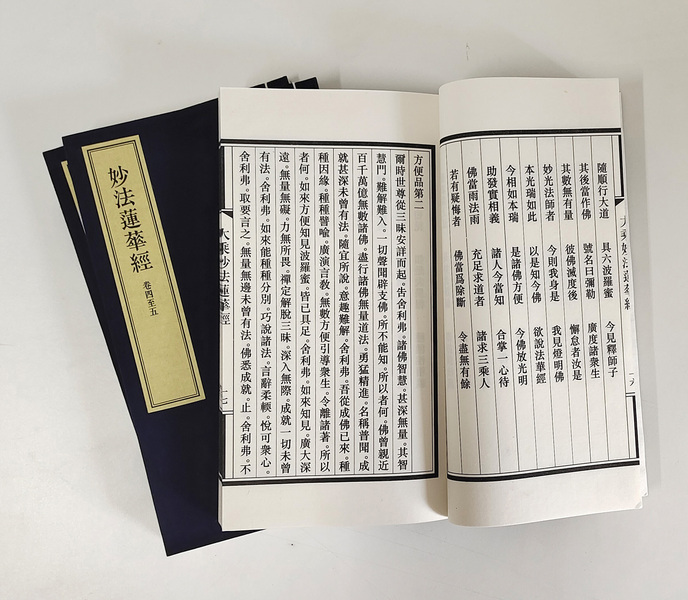 妙法蓮華經
卷四至五
隨順行大道 具六波羅蜜 今見釋師子
其後當作佛 號名曰彌勒 廣度諸衆生
其數無有量 彼佛滅度後 懈怠者汝是
妙光法師者 今則我身是 我見燈明佛
本光瑞如此 以是知今佛 欲說法華經
今相如本瑞 是諸佛方便 今佛放光明
助發實相義 諸人今當知 合掌一心待
佛當雨法雨 充足求道者 諸求三乘人
若有疑悔者 佛當爲除斷 令盡無有餘
方便品第二
爾時世尊從三昧安詳而起。告舍利弗。諸佛智慧。甚深無量。其智
慧門。難解難入。一切聲聞辟支佛。所不能知。所以者何。佛曾親近
百千萬億無數諸佛。盡行諸佛無量道法。勇猛精進。名稱普聞。成
就甚深未曾有法。隨宜所說。意趣難解。舍利弗。吾從成佛已來。種
種因緣。種種譬喻。廣演言教。無數方便引導衆生。令離諸著。所以
者何。如來方便知見波羅蜜。皆已具足。舍利弗。如來知見。廣大深
遠。無量無礙。力無所畏。禪定解脫三昧。深入無際。成就一切未曾
有法。舍利弗。如來能種種分別。巧說諸法。言辭柔輭。悅可衆心。
舍利弗。取要言之。無量無邊未曾有法。佛悉成就。止。舍利弗。不
大乘妙法蓮華經
十七